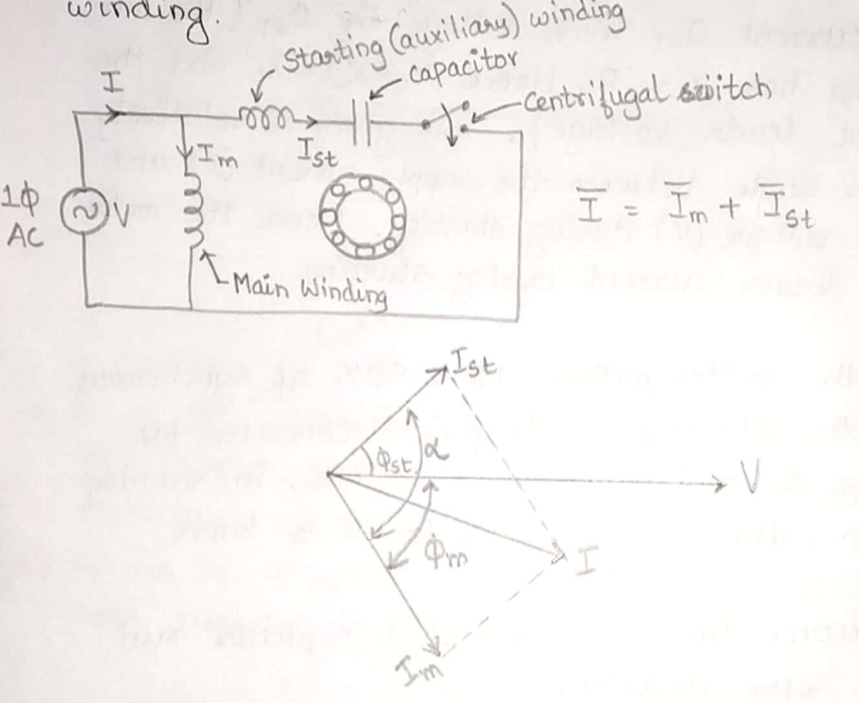 winding.
Starting (auxiliary) winding
capacitor
Centrifugal switch
I
Im
Ist
1ϕ
AC
V
Main Winding
I̅ = I̅m + I̅st
Ist
ϕst
α
V
ϕm
I
Im